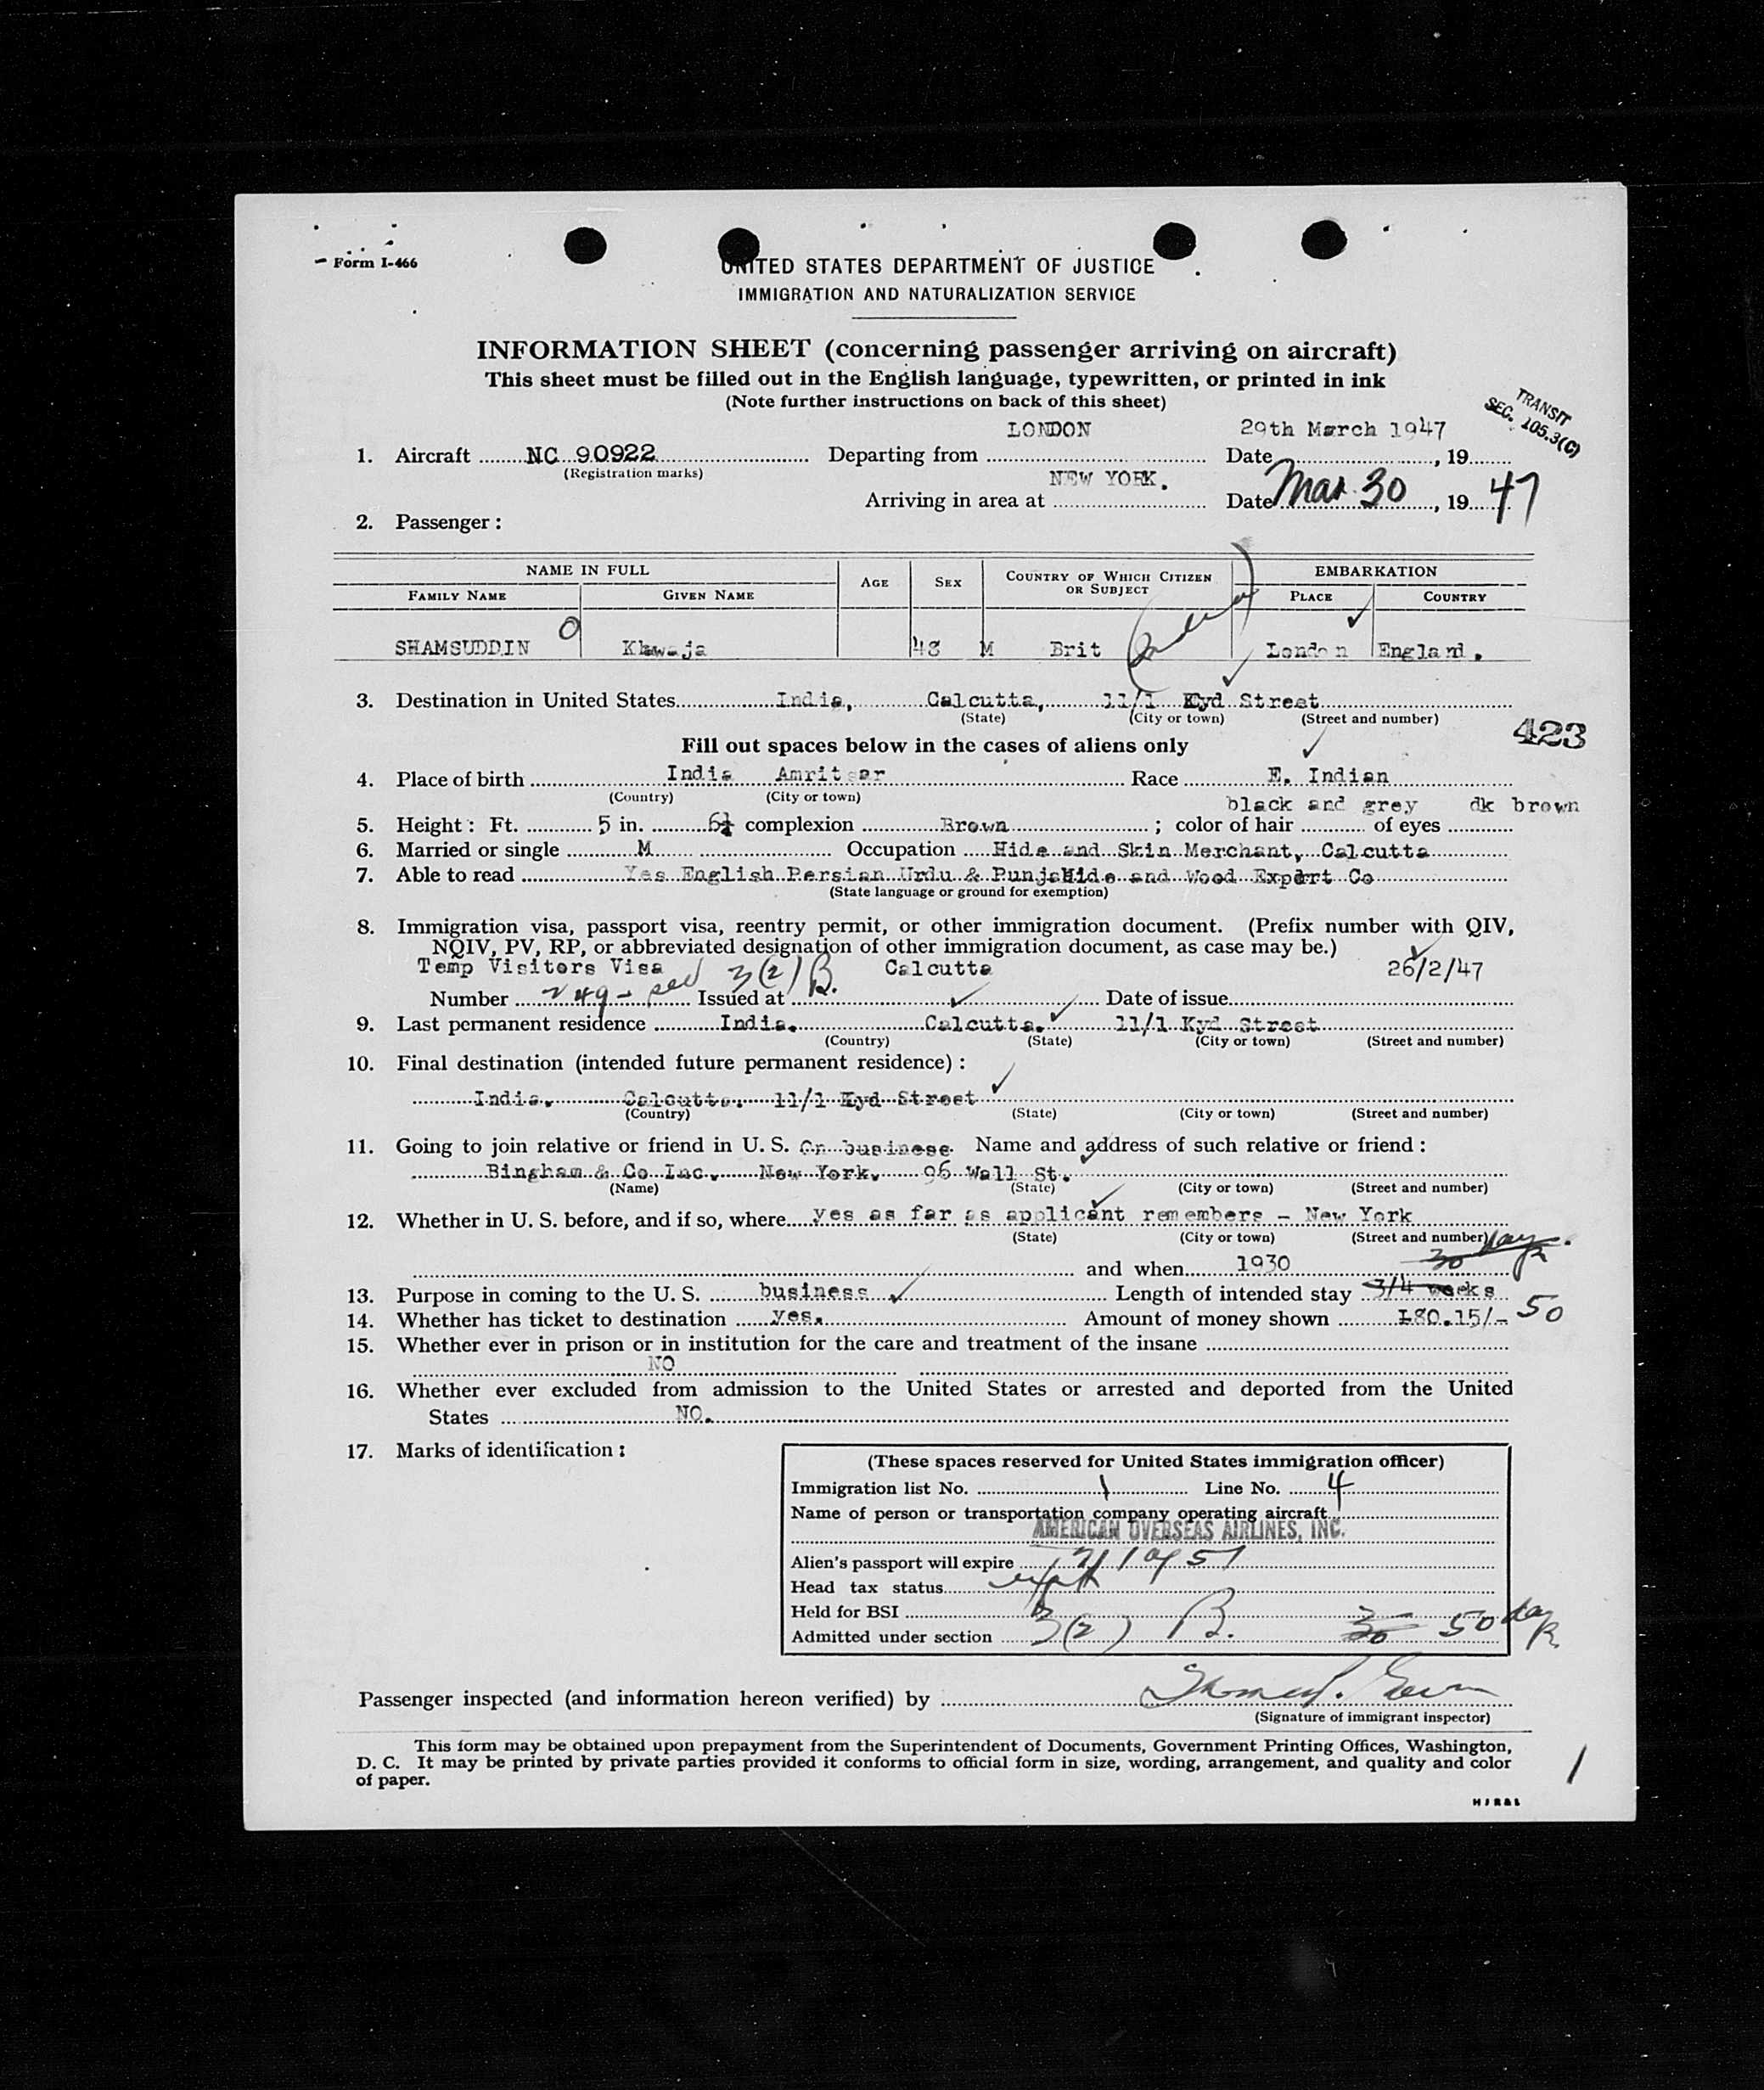 Form I-466
UNITED STATES DEPARTMENT OF JUSTICE
IMMIGRATION AND NATURALIZATION SERVICE
INFORMATION SHEET (concerning passenger arriving on aircraft)
This sheet must be filled out in the English language, typewritten, or printed in ink
(Note further instructions on back of this sheet)
TRANSIT
SEC. 105.3(C)
LONDON 29th March 1947
1. Aircraft NC 90922 Departing from Date , 19
(Registration marks)
NEW YORK.
Arriving in area at Date Mar 30, 19 47
2. Passenger :
NAME IN FULL AGE SEX COUNTRY OF WHICH CITIZEN OR SUBJECT EMBARKATION
FAMILY NAME GIVEN NAME PLACE COUNTRY
SHAMSUDDIN Khwaja 48 M Brit (India) London England.
3. Destination in United States India, Calcutta, 11/1 Kyd Street
(State) (City or town) (Street and number)
423
Fill out spaces below in the cases of aliens only
4. Place of birth India Amritsar Race E. Indian
(Country) (City or town)
black and grey dk brown
5. Height : Ft. 5 in. 6½ complexion Brown ; color of hair of eyes
6. Married or single M Occupation Hide and Skin Merchant, Calcutta
7. Able to read Yes English Persian Urdu & Punja Hide and Wood Export Co
(State language or ground for exemption)
8. Immigration visa, passport visa, reentry permit, or other immigration document. (Prefix number with QIV,
NQIV, PV, RP, or abbreviated designation of other immigration document, as case may be.)
Temp Visitors Visa 3(2)B. Calcutta 26/2/47
Number 249 Issued at Date of issue
9. Last permanent residence India. Calcutta. 11/1 Kyd Street
(Country) (State) (City or town) (Street and number)
10. Final destination (intended future permanent residence) :
India. Calcutta. 11/1 Kyd Street
(Country) (State) (City or town) (Street and number)
11. Going to join relative or friend in U. S. On business. Name and address of such relative or friend :
Bingham & Co Inc. New York. 96 Wall St.
(Name) (State) (City or town) (Street and number)
12. Whether in U. S. before, and if so, where yes as far as applicant remembers - New York
(State) (City or town) (Street and number)
and when 1930 30 days
13. Purpose in coming to the U. S. business Length of intended stay 3/4 weeks
14. Whether has ticket to destination yes. Amount of money shown £80.15/- 50
15. Whether ever in prison or in institution for the care and treatment of the insane
NO
16. Whether ever excluded from admission to the United States or arrested and deported from the United
States NO.
17. Marks of identification :
(These spaces reserved for United States immigration officer)
Immigration list No. 1 Line No. 4
Name of person or transportation company operating aircraft
AMERICAN OVERSEAS AIRLINES, INC.
Alien's passport will expire
Head tax status
Held for BSI
Admitted under section 3(2) B. 30 50 days
Passenger inspected (and information hereon verified) by
(Signature of immigrant inspector)
This form may be obtained upon prepayment from the Superintendent of Documents, Government Printing Offices, Washington,
D. C. It may be printed by private parties provided it conforms to official form in size, wording, arrangement, and quality and color
of paper.
1